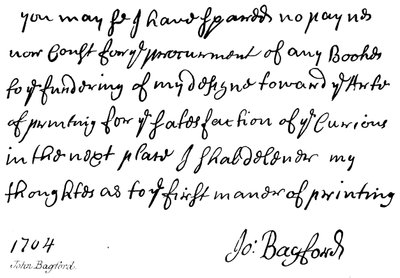 you may se I have spared no paynes
nor Const for yᵉ procurment of any Bookes
to yᵉ fundering of my designe toward yᵉ Arte
of printing for yᵉ satesfaction of yᵉ Curious
in the next place I shal delever my
thoughtes as to yᵉ first maner of printing
1704
Jo: Bagford
John Bagford.